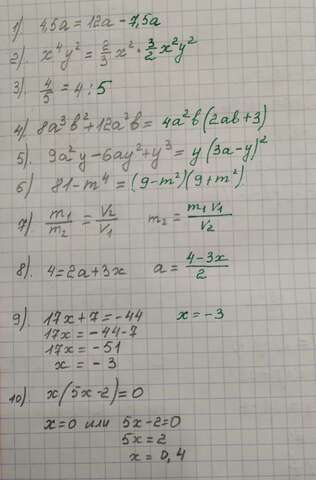 1) 4,5a = 12a - 7,5a
2). x⁴y² = 2/3 x² · 3/2 x²y²
3). 4/5 = 4 : 5
4) 8a³b² + 12a²b = 4a²b(2ab + 3)
5). 9a²y - 6ay² + y³ = y(3a - y)²
6) 81 - m⁴ = (9 - m²)(9 + m²)
7) m₁/m₂ = V₂/V₁ m₂ = m₁V₁/V₂
8). 4 = 2a + 3x a = (4 - 3x)/2
9). 17x + 7 = -44 x = -3
17x = -44 - 7
17x = -51
x = -3
10). x(5x - 2) = 0
x = 0 или 5x - 2 = 0
5x = 2
x = 0,4